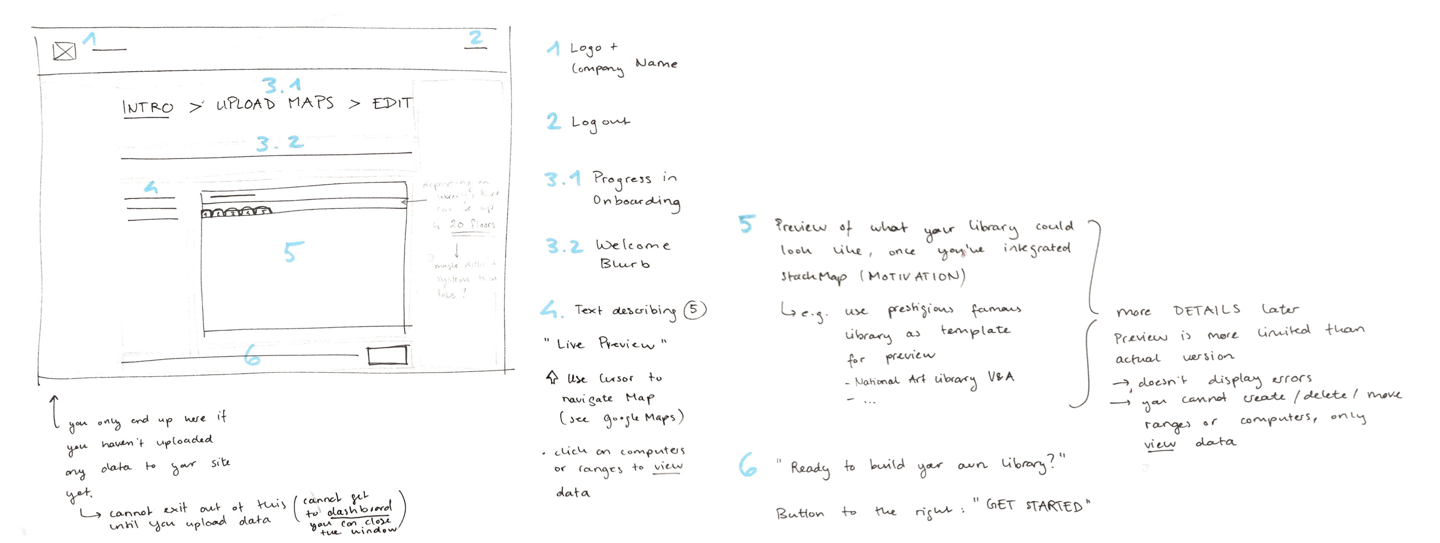 1
2
3.1
INTRO > UPLOAD MAPS > EDIT
3.2
4
1 2 3 4 5
5
6
depending on
can be up
to 20 floors
maybe
system
tabs?
you only end up here if
you haven't uploaded
any data to your site
yet.
cannot exit out of this
until you upload data
(cannot get
to dashboard
you can close
the window)
1 Logo +
Company Name
2 Logout
3.1 Progress in
Onboarding
3.2 Welcome
Blurb
4. Text describing 5
"Live Preview"
Use Cursor to
navigate Map
(see google Maps)
· click on computers
or ranges to view
data
5 Preview of what your library could
look like, once you've integrated
StackMap (MOTIVATION)
e.g. use prestigious famous
library as template
for preview
- National Art Library V&A
- ...
more DETAILS later
Preview is more limited than
actual version
→ doesn't display errors
→ you cannot create/delete/move
ranges or computers, only
view data
6 "Ready to build your own library?"
Button to the right: "GET STARTED"